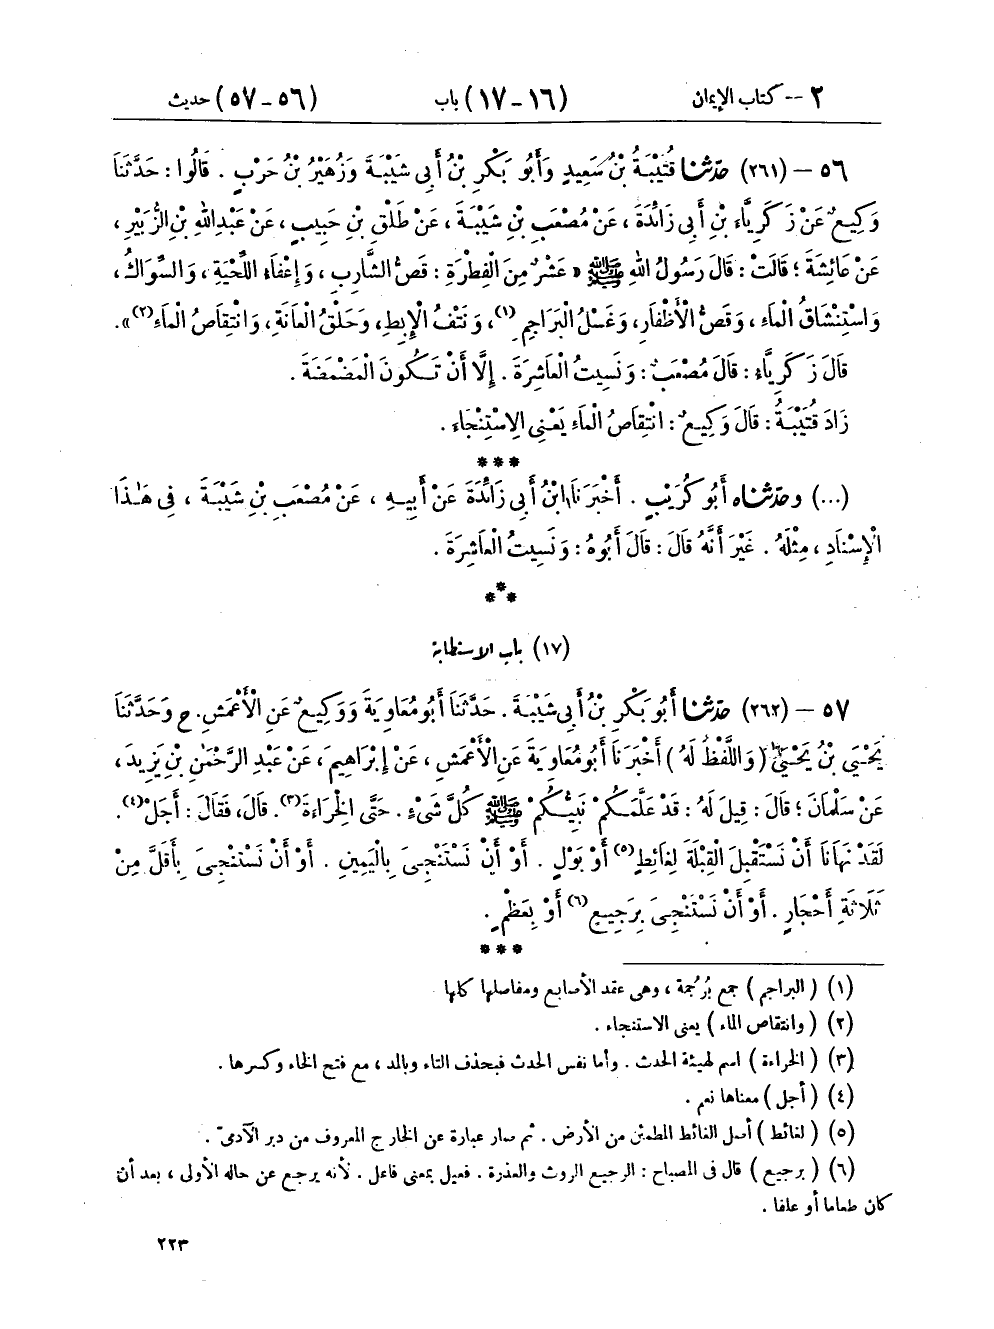 ٢ -- كتاب الإيمان (١٦ - ١٧) باب (٥٦ - ٥٧) حديث
٥٦ - (٢٦١) حدثنا قُتَيْبَةُ بْنُ سَعِيدٍ وَأَبُو بَكْرِ بْنُ أَبِي شَيْبَةَ وَزُهَيْرُ بْنُ حَرْبٍ . قَالُوا : حَدَّثَنَا
وَكِيعٌ عَنْ زَكَرِيَّاءَ بْنِ أَبِي زَائِدَةَ ، عَنْ مُصْعَبِ بْنِ شَيْبَةَ ، عَنْ طَلْقِ بْنِ حَبِيبٍ ، عَنْ عَبْدِ اللهِ بْنِ الزُّبَيْرِ ،
عَنْ عَائِشَةَ ؛ قَالَتْ : قَالَ رَسُولُ اللهِ ﷺ « عَشْرٌ مِنَ الْفِطْرَةِ : قَصُّ الشَّارِبِ ، وَإِعْفَاءُ اللِّحْيَةِ ، وَالسِّوَاكُ ،
وَاسْتِنْشَاقُ الْمَاءِ ، وَقَصُّ الْأَظْفَارِ ، وَغَسْلُ الْبَرَاجِمِ (١) ، وَنَتْفُ الْإِبِطِ ، وَحَلْقُ الْعَانَةِ ، وَانْتِقَاصُ الْمَاءِ (٢) » .
قَالَ زَكَرِيَّاءُ : قَالَ مُصْعَبٌ : وَنَسِيتُ الْعَاشِرَةَ . إِلَّا أَنْ تَكُونَ الْمَضْمَضَةَ .
زَادَ قُتَيْبَةُ : قَالَ وَكِيعٌ : انْتِقَاصُ الْمَاءِ يَعْنِي الِاسْتِنْجَاءَ .
***
(...) وحدثناه أَبُو كُرَيْبٍ . أَخْبَرَنَا ابْنُ أَبِي زَائِدَةَ عَنْ أَبِيهِ ، عَنْ مُصْعَبِ بْنِ شَيْبَةَ ، فِي هَٰذَا
الْإِسْنَادِ ، مِثْلَهُ . غَيْرَ أَنَّهُ قَالَ : قَالَ أَبُوهُ : وَنَسِيتُ الْعَاشِرَةَ .
***
(١٧) باب الاستطابة
٥٧ - (٢٦٢) حدثنا أَبُو بَكْرِ بْنُ أَبِي شَيْبَةَ . حَدَّثَنَا أَبُو مُعَاوِيَةَ وَوَكِيعٌ عَنِ الْأَعْمَشِ . ح وَحَدَّثَنَا
يَحْيَى بْنُ يَحْيَىٰ ( وَاللَّفْظُ لَهُ ) أَخْبَرَنَا أَبُو مُعَاوِيَةَ عَنِ الْأَعْمَشِ ، عَنْ إِبْرَاهِيمَ ، عَنْ عَبْدِ الرَّحْمَٰنِ بْنِ يَزِيدَ ،
عَنْ سَلْمَانَ ؛ قَالَ : قِيلَ لَهُ : قَدْ عَلَّمَكُمْ نَبِيُّكُمْ ﷺ كُلَّ شَيْءٍ . حَتَّى الْخِرَاءَةَ (٣) . قَالَ ، فَقَالَ : أَجَلْ (٤) .
لَقَدْ نَهَانَا أَنْ نَسْتَقْبِلَ الْقِبْلَةَ لِغَائِطٍ (٥) أَوْ بَوْلٍ . أَوْ أَنْ نَسْتَنْجِيَ بِالْيَمِينِ . أَوْ أَنْ نَسْتَنْجِيَ بِأَقَلَّ مِنْ
ثَلَاثَةِ أَحْجَارٍ . أَوْ أَنْ نَسْتَنْجِيَ بِرَجِيعٍ (٦) أَوْ بِعَظْمٍ .
***
(١) ( البراجم ) جمع بُرْجُمة ، وهى عقد الأصابع ومفاصلها كلها
(٢) ( وانتقاص الماء ) يعنى الاستنجاء .
(٣) ( الخراءة ) اسم لهيئة الحدث . وأما نفس الحدث فبحذف التاء وبالمد ، مع فتح الخاء وكسرها .
(٤) ( أجل ) معناها نعم .
(٥) ( لغائط ) أصل الغائط المطمئن من الأرض . ثم صار عبارة عن الخارج المعروف من دبر الآدمىّ .
(٦) ( برجيع ) قال فى المصباح : الرجيع الروث والعذرة . فعيل بمعنى فاعل . لأنه يرجع عن حاله الأولى ، بعد أن
كان طعاما أو علفا .
٢٢٣